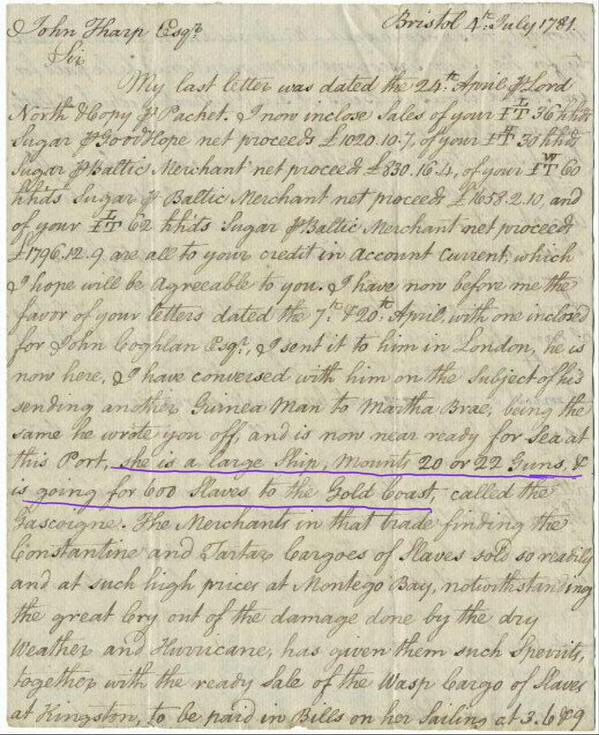 John Tharp Esqr. Bristol 4th July 1781.
Sir
My last letter was dated the 24th April ⅌ Lord
North & Copy ⅌ Packet. I now inclose Sales of your 36 hhds
Sugar ⅌ Good Hope net proceeds £1020.10.7, of your 30 hhds
Sugar ⅌ Baltic Merchant net proceed £830.16.4, of your 60
hhds Sugar ⅌ Baltic Merchant net proceed £1658.2.10, and
of your 62 hhds Sugar ⅌ Baltic Merchant net proceed
£1796.12.9 are all to your credit in Account Current, which
I hope will be Agreeable to you. I have now before me the
favor of your letters dated the 7th & 20th April, with one inclosed
for John Coghlan Esqr, I sent it to him in London, he is
now here, & I have conversed with him on the Subject of his
sending another Guinea Man to Martha Brae, being the
same he wrote you off, and is now near ready for Sea at
this Port, she is a large Ship, Mounts 20 or 22 Guns, &
is going for 600 Slaves to the Gold Coast, called the
Gascoigne. The Merchants in that trade finding the
Constantine and Tartar Cargoes of Slaves sold so readily
and at such high prices at Montego Bay, notwithstanding
the great Cry out of the damage done by the dry
Weather and Hurricane, has given them such Speriits,
together with the ready Sale of the Wasp Cargo of Slaves
at Kingston, to be paid in Bills on her Sailing at 3. 6 & 9